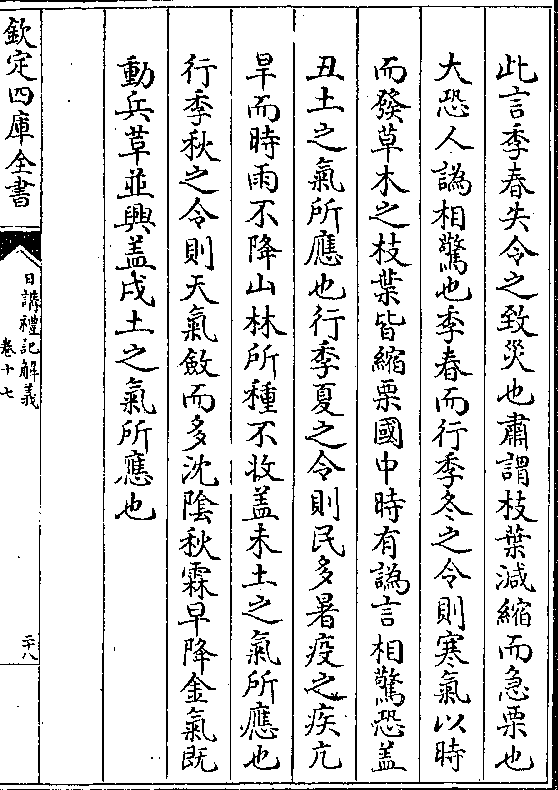 此言季春失令之致災也肅謂枝葉減縮而急栗也
大恐人譌相驚也季春而行季冬之令則寒氣以時
而發草木之枝葉皆縮栗國中時有譌言相驚恐盖
丑土之氣所應也行季夏之令則民多暑疫之疾亢
旱而時雨不降山林所種不收盖未土之氣所應也
行季秋之令則天氣斂而多沈陰秋霖早降金氣既
動兵革並興盖戌土之氣所應也
欽定四庫全書
日講禮記解義
卷十七
二十八